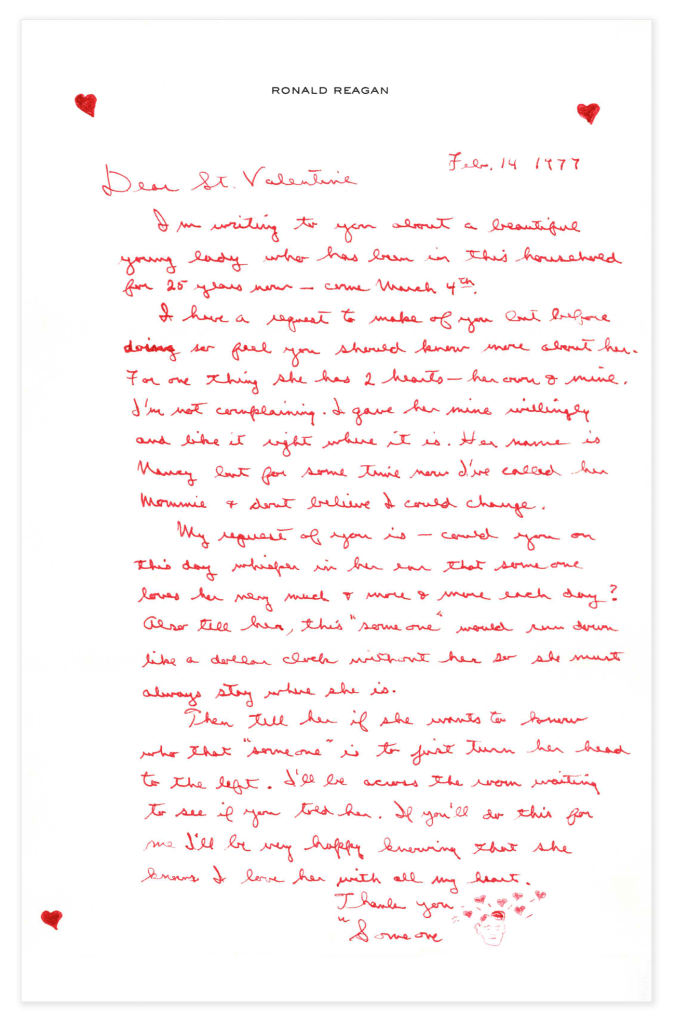 RONALD REAGAN
Feb. 14 1977
Dear St. Valentine
I'm writing to you about a beautiful
young lady who has been in this household
for 25 years now — come March 4th.
I have a request to make of you but before
doing so feel you should know more about her.
For one thing she has 2 hearts — her own & mine.
I'm not complaining. I gave her mine willingly
and like it right where it is. Her name is
Nancy but for some time now I've called her
Mommie & don't believe I could change.
My request of you is — could you on
this day whisper in her ear that someone
loves her very much & more & more each day?
Also tell her, this "someone" would run down
like a dollar clock without her so she must
always stay where she is.
Then tell her if she wants to know
who that "someone" is to just turn her head
to the left. I'll be across the room waiting
to see if you told her. If you'll do this for
me I'll be very happy knowing that she
knows I love her with all my heart.
Thank you
"Someone